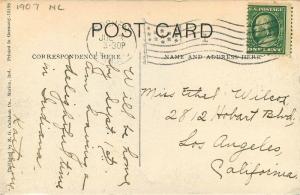 1907 NC
POST CARD
CORRESPONDENCE HERE
NAME AND ADDRESS HERE
3-30P
ONE CENT
Will be home
by Sept 1st.
Having a
delightful time
in Indiana.
Miss Ethel Wilcox,
2812 Hobart Blvd;
Los Angeles
California.